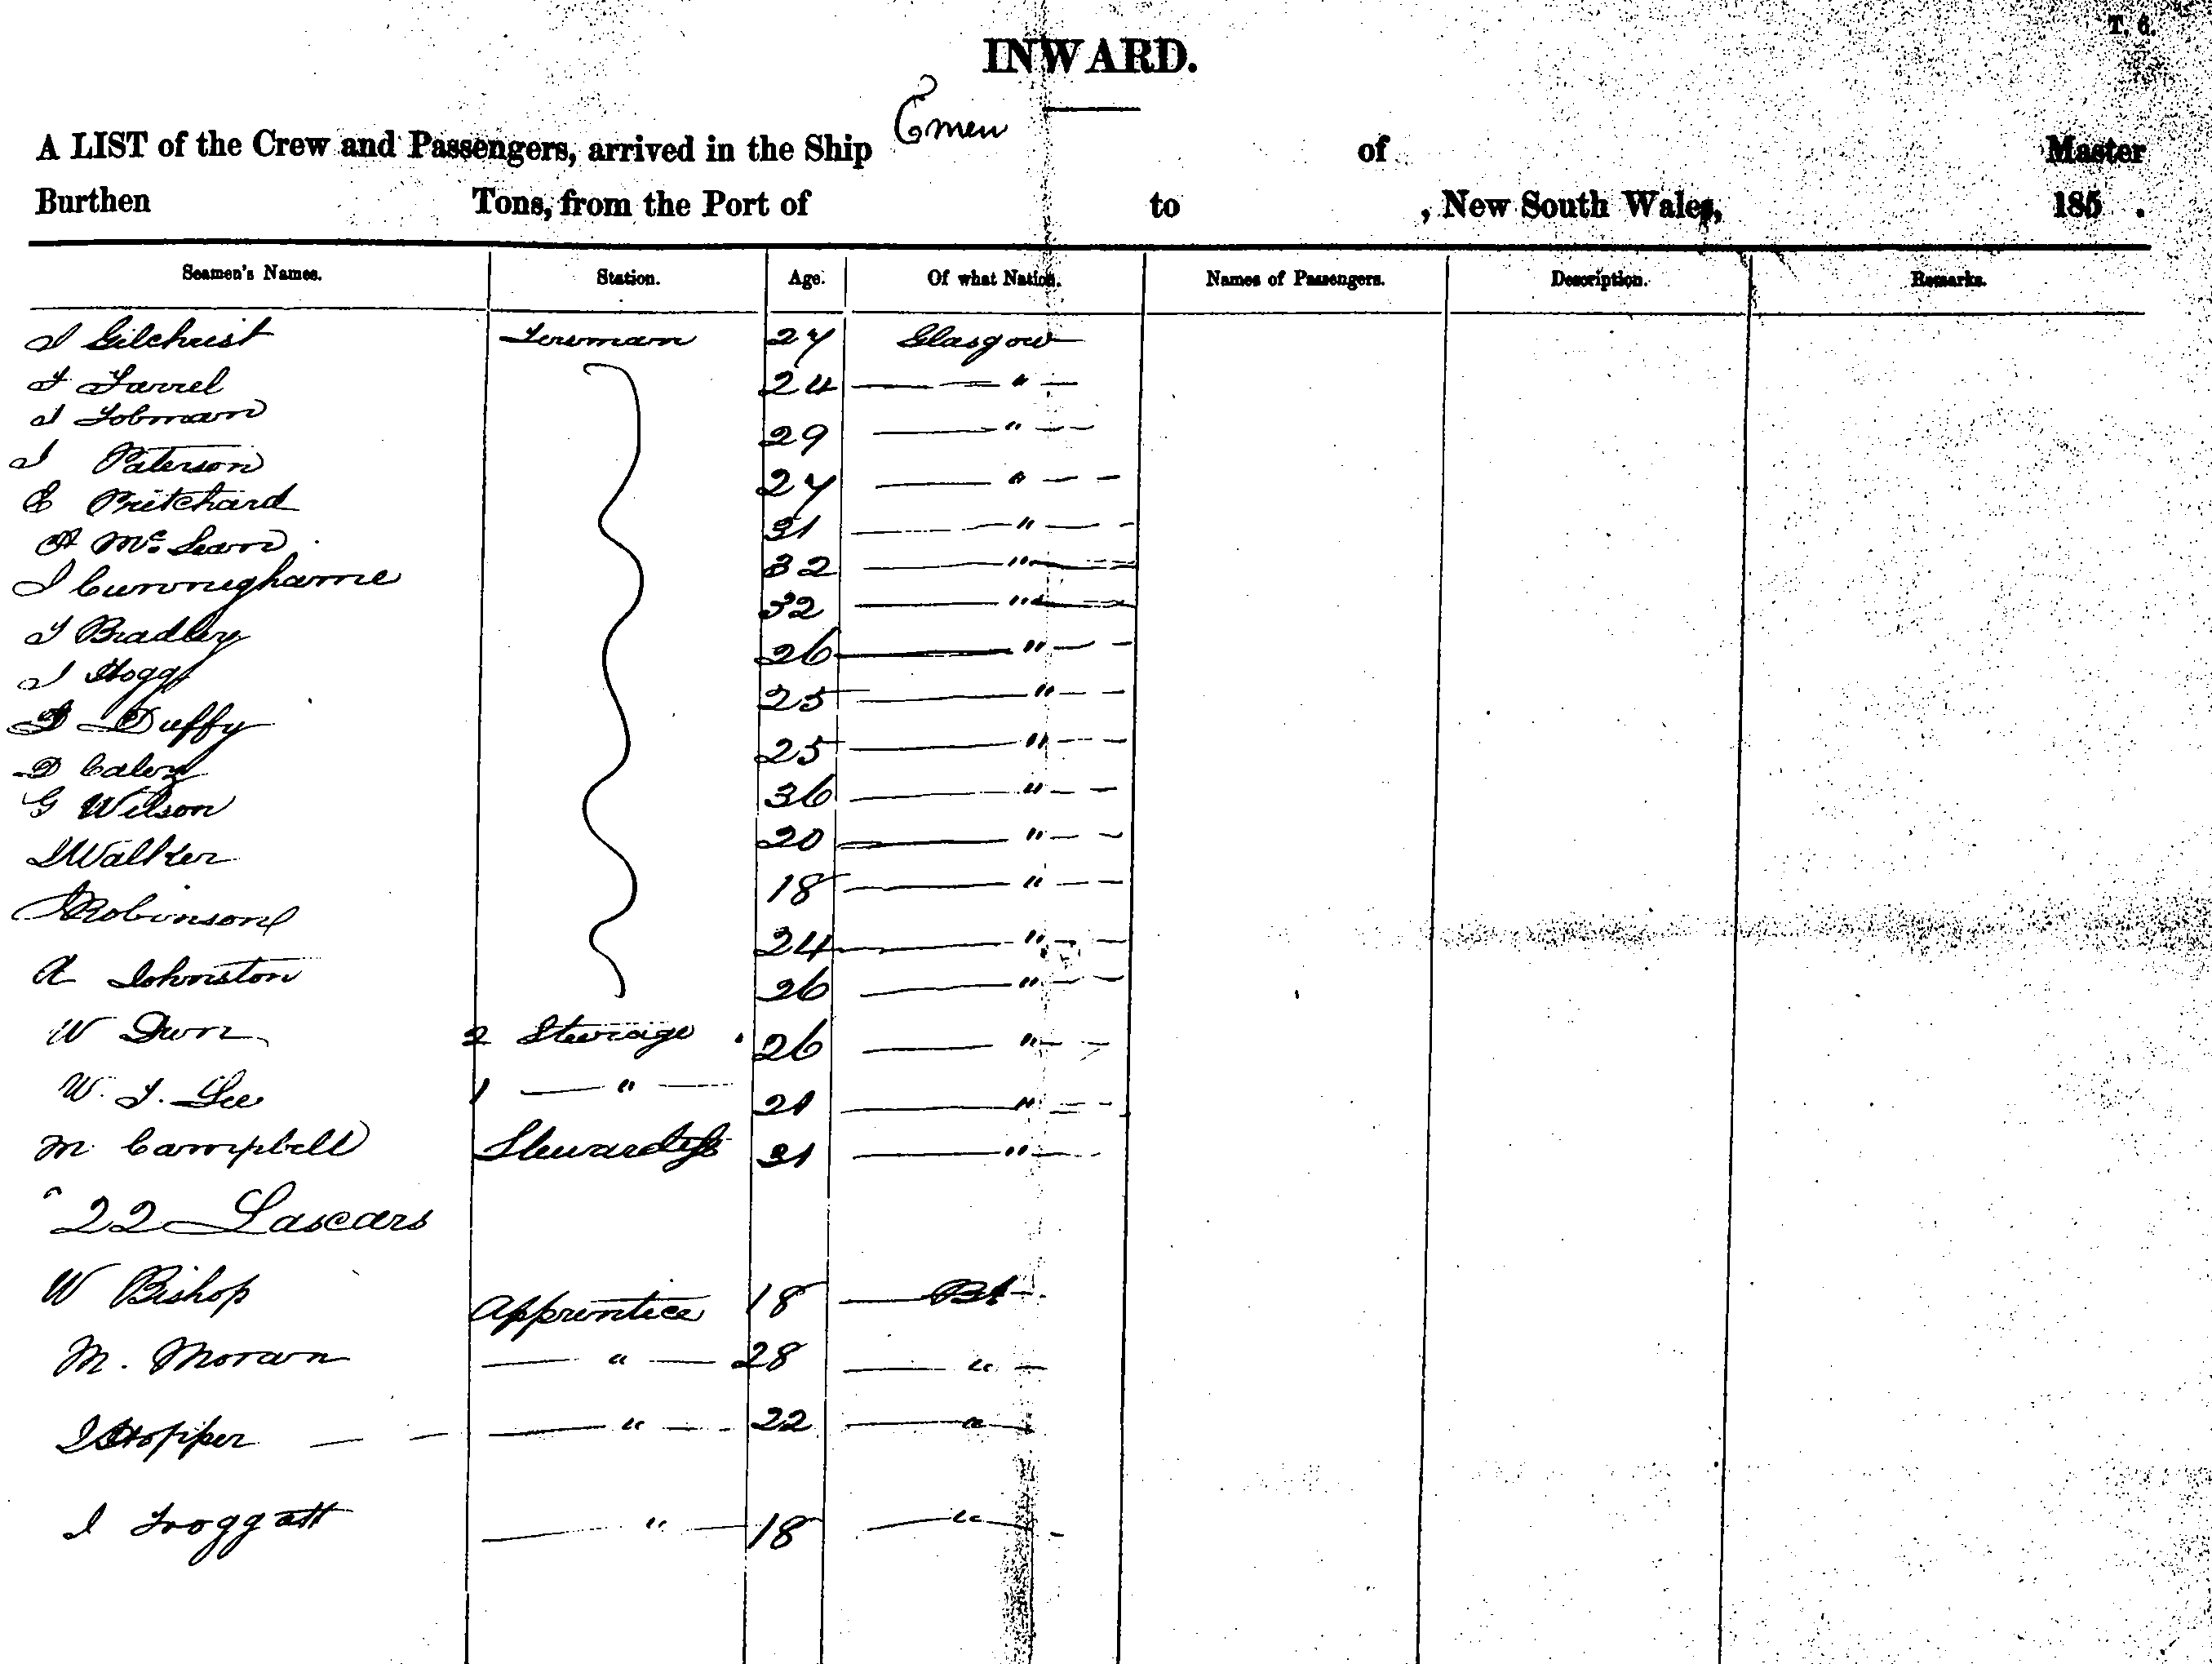 T. 6.
INWARD.
A LIST of the Crew and Passengers, arrived in the Ship Emeu of Master
Burthen Tons, from the Port of to , New South Wales, 185 .
Seamen's Names. Station. Age. Of what Nation. Names of Passengers. Description. Remarks.
J Gilchrist Fireman 27 Glasgow
T Farrel 24 — " —
J 29 — " —
J Paterson 27 — " —
E Pritchard 31 — " —
A Mc Lean 32 — " —
J Cunninghame 32 — " —
J Bradley 26 — " —
J Hogg 25 — " —
D Duffy 25 — " —
D Caley 36 — " —
G Wilson 20 — " —
J Walker 18 — " —
J Robinson 24 — " —
A Johnston 26 — " —
W Dunn 2 Steerage 26 — " —
W. J. Lee 1 — " — 21 — " —
M Campbell Stewardess 31 — " —
22 Lascars
W Bishop Apprentice 18
M. Moran — " — 28 — " —
J Hopper — " — 22 — " —
J Froggatt — " — 18 — " —